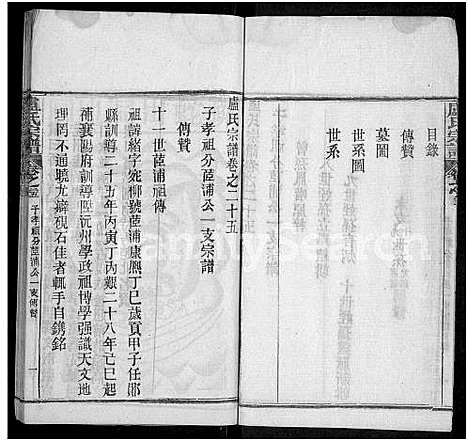 盧氏宗譜
目錄
傳贊
墓圖
世系圖
世系
盧氏宗譜卷之二十五
子孝祖分茝浦公一支宗譜
傳贊
十一世茝浦祖傳
祖諱緒字宛椰號茝浦康熙丁巳歲貢甲子任鄖
縣訓導二十五年丙寅丁丙艱二十八年己巳起
補襄陽府訓導陞沅州學政祖博學强識天文地
理罔不通曉尤癖硯石佳者輒手自鐫銘
盧氏宗譜
子孝祖分茝浦公一支傳贊
一